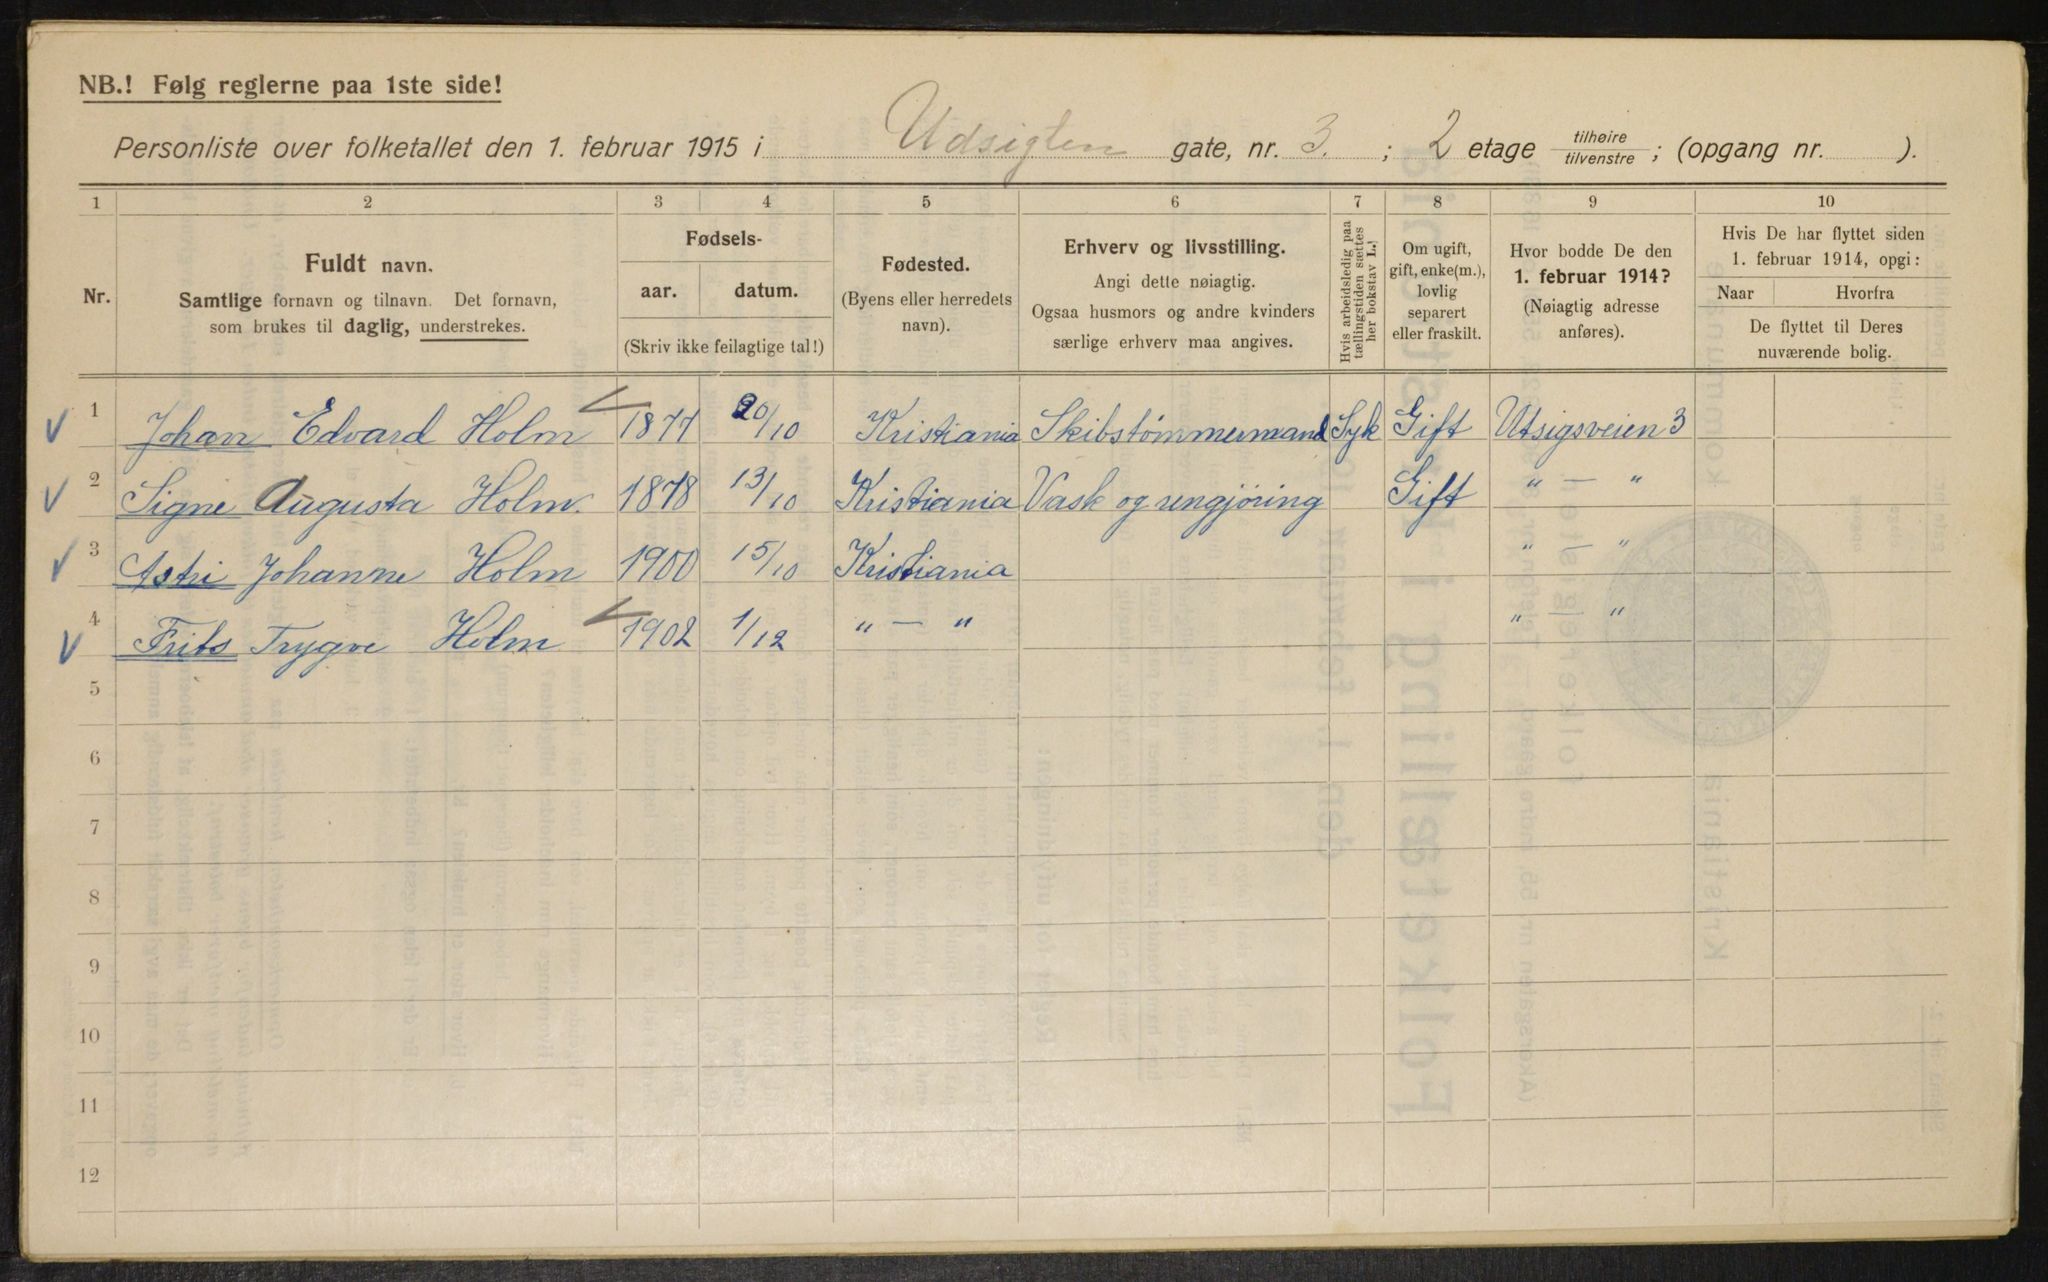 NB.! Følg reglerne paa 1ste side!
Personliste over folketallet den 1. februar 1915 i Udsigten gate, nr. 3. ; 2 etage tilhøire / tilvenstre ; (opgang nr. ).
1 2 3 4 5 6 7 8 9 10
Nr.
Fuldt navn.
Samtlige fornavn og tilnavn. Det fornavn,
som brukes til daglig, understrekes.
Fødsels-
aar. datum.
(Skriv ikke feilagtige tal!)
Fødested.
(Byens eller herredets
navn).
Erhverv og livsstilling.
Angi dette nøiagtig.
Ogsaa husmors og andre kvinders
særlige erhverv maa angives.
Hvis arbeidsledig paa
tællingstiden sættes
her bokstav L.)
Om ugift,
gift, enke(m.),
lovlig
separert
eller fraskilt.
Hvor bodde De den
1. februar 1914?
(Nøiagtig adresse
anføres).
Hvis De har flyttet siden
1. februar 1914, opgi:
Naar Hvorfra
De flyttet til Deres
nuværende bolig.
1 Johan Edvard Holm 1877 20/10 Kristiania Skibstømmermand Syk Gift Utsigsveien 3
2 Signe Augusta Holm. 1878 13/10 Kristiania Vask og rengjøring Gift " — "
3 Astri Johanne Holm 1900 15/10 Kristiania " — "
4 Frits Trygve Holm 1902 1/12 " — " " — "
5
6
7
8
9
10
11
12